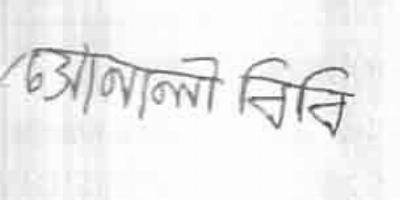 সোনালী বিবি